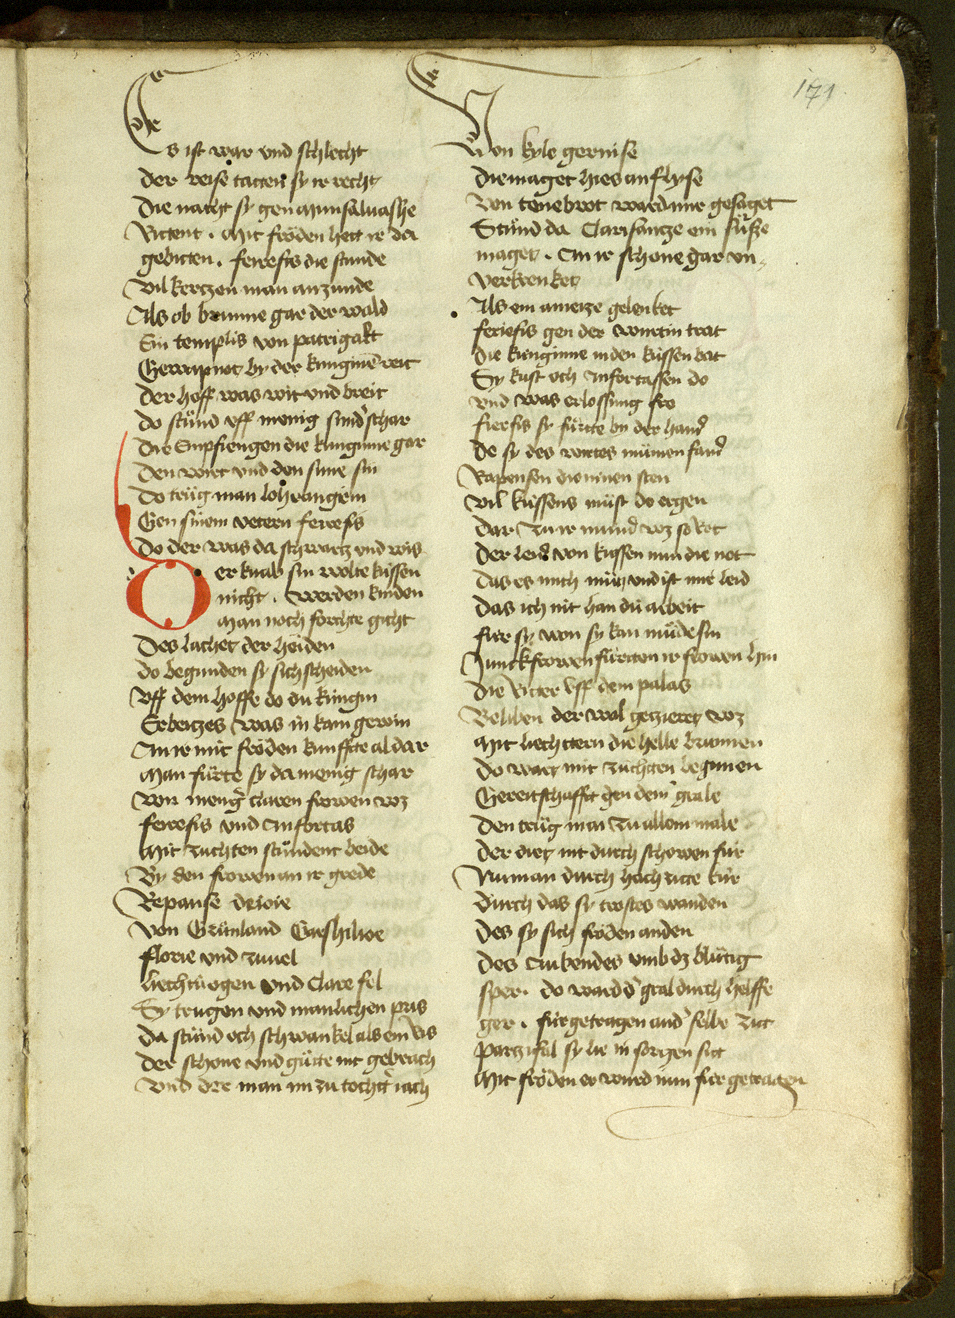 171
Es ist war vnd schlecht
Der reise tatten sy ir recht
Die nacht sy gen munsaluashe
Rittent . Mit fröden hett ir da
gebitten . ferefis die stunde
Vil kertzen man anzunde
Als ob brunne gar der wald
Ein templis von patrigalt
Gewapnot by der kunginē reit
Der hoff was wit vnd breit
Do stůnd vff menig sund schar
Die Enpfiengen die kunginne gar
Den wirt vnd den sune sin
Do trůg man loherangrin
Gen sinem vetern ferefis
Do der was da schwartz vnd wis
Der knab sin wolte küssen
nicht . Werden kinden
Man noch forchte gicht
Des lachet der heiden
Do begunden sy sich scheiden
Vff dem hoffe do du kungin
Erbeitzes was in kam gewin
An ir mit fröden kunffte aldar
Man fürte sy da menig schar
Von menger claren frowen woz
ferefis vnd Anfortas
Mit zuchten stůndent beide
By den frowen an ir grede
Repanse de ioie
Von Grünland Garshiloie
florie vnd
liechtu ogen vnd Clare fel
Sy trugen vnd manlichen pris
Da stůnd och schwankel als ein ris
Der schone vnd gůtte nit gebrach
Vnd dre man im zu tochter iach
Von kyle gernise
Die maget hies anflyse
Von tenebrot ward mir gesaget
Stůnd da Clarisantze ein sůsse
maget . An ir schone gar vn
verkrenket
Als ein ameize gelenket
ferefis gen der wirtin trat
Die kunginne in den küssen bat
Sy kust och Anfortassen do
vnd was erlossung fro
fierfis sy fürte by der hand
Do sy des wirtes mümen fand
Rapensen die ninen sten
Vil küssens můst do ergen
Dar zu ir mund woz so rot
Der leid von küssen nun die not
Das es mich můg vnd ist mir leid
Das ich nit han dü arbeit
für sy won sy kan müde sin
Junckfrowen fürtten ir frowen hin
Die Ritter vff dem palas
Beliben der wol gezieret woz
Mit liechttern die helle brunnen
Do wart mit zuchten begunnen
Gereitschafft gen dem grale
Den trůg man zu allem male
Der diet nit durch schowen für
Nu man durch hochzitte kür
Durch das sy trostes wanden
Des sy sich fröden anden
Des Aubendes vmb dz blůtig
sper . do ward der gral durch helffe
ger . für getragen and selbe zit
Parzifal sy lie in sorgen sit
Mit fröden er wurd nun für getragen